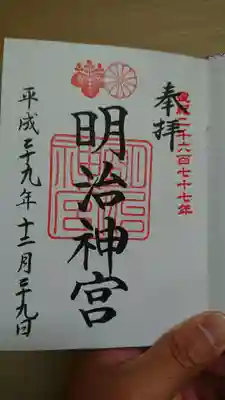 奉拝
皇紀二千六百七十七年
明治神宮
平成二十九年十二月二十九日